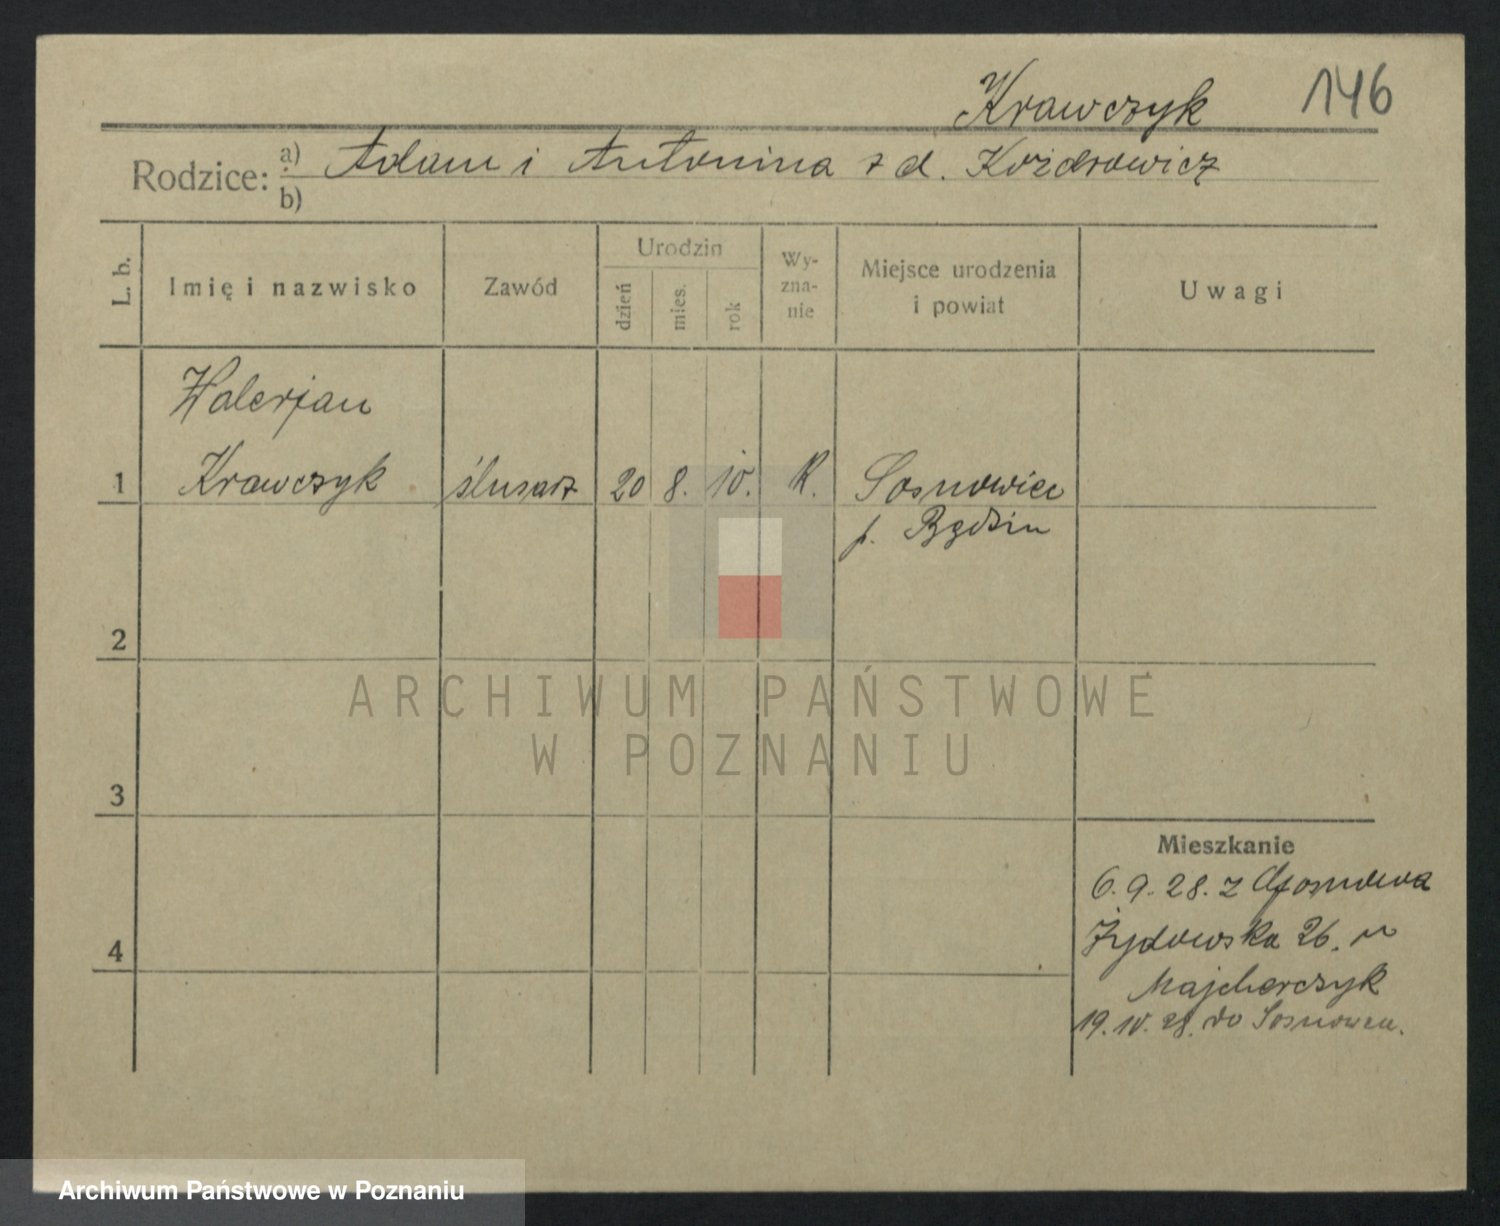 Krawczyk 146
Rodzice: a) Adam i Antonina z d. Koździowicz
b)
L. b. Imię i nazwisko Zawód Urodzin dzień mies. rok Wy-zna-nie Miejsce urodzenia i powiat Uwagi
Walerjan
1 Krawczyk ślusarz 20 8. 10. R. Sosnowiec
p. Będzin
2
ARCHIWUM PAŃSTWOWE
W POZNANIU
3
Mieszkanie
6.9.28. z
Żydowska 26. u
4
Majcherczyk
19.10.28. do Sosnowca.
Archiwum Państwowe w Poznaniu